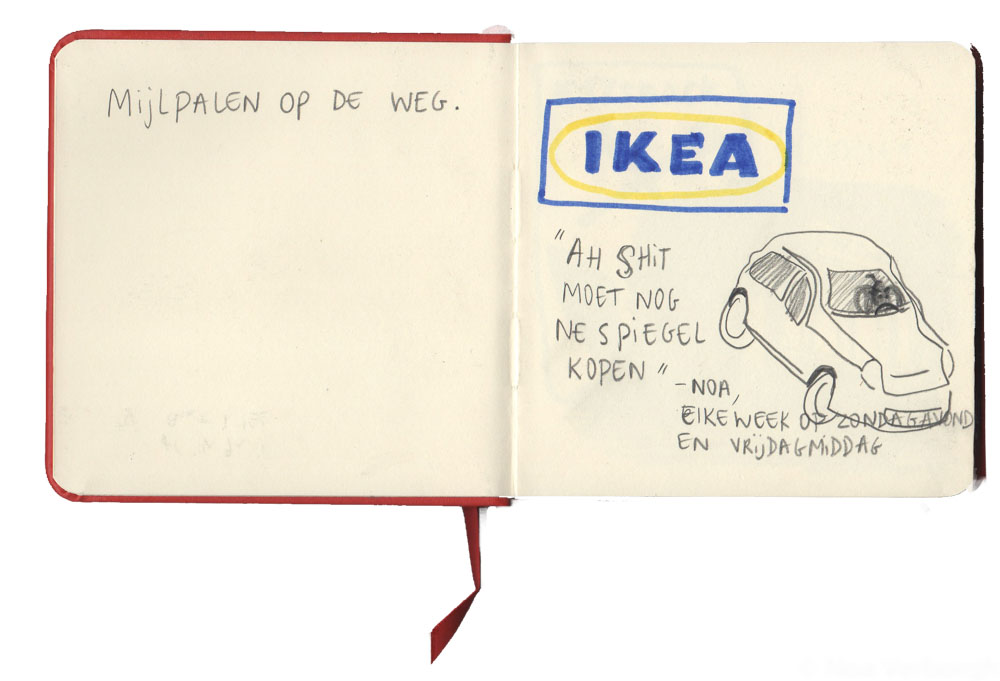 MijLPALEN OP DE WEG.
IKEA
"AH SHiT
MOET NOG
NE SPiEGEL
KOPEN"
-NOA,
ELKE WEEK OP ZONDAGAVOND
EN VRIJDAGMiDDAG